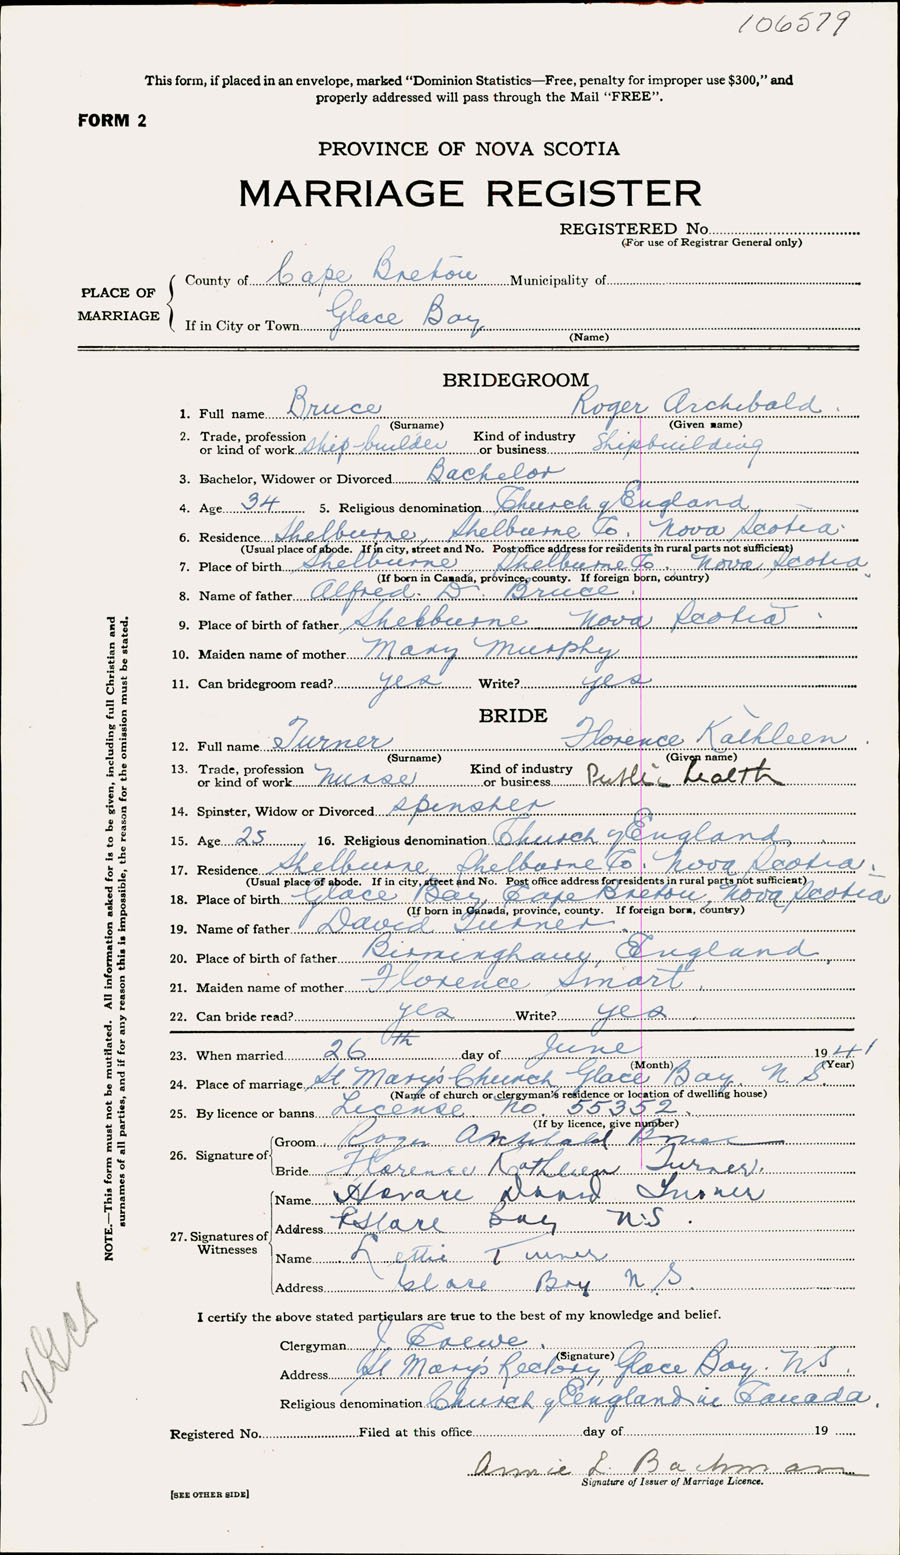 106579
This form, if placed in an envelope, marked "Dominion Statistics—Free, penalty for improper use $300," and
properly addressed will pass through the Mail "FREE".
FORM 2
PROVINCE OF NOVA SCOTIA
MARRIAGE REGISTER
REGISTERED No.
(For use of Registrar General only)
PLACE OF MARRIAGE
County of Cape Breton Municipality of
If in City or Town Glace Bay
(Name)
BRIDEGROOM
1. Full name Bruce Roger Archibald.
(Surname) (Given name)
2. Trade, profession or kind of work ship-builder Kind of industry or business Shipbuilding
3. Bachelor, Widower or Divorced Bachelor
4. Age 34 5. Religious denomination Church of England
6. Residence Shelburne, Shelburne Co. Nova Scotia.
(Usual place of abode. If in city, street and No. Post office address for residents in rural parts not sufficient)
7. Place of birth Shelburne Shelburne Co. Nova Scotia.
(If born in Canada, province, county. If foreign born, country)
8. Name of father Alfred. D. Bruce.
9. Place of birth of father Shelburne Nova Scotia.
10. Maiden name of mother Mary Murphy
11. Can bridegroom read? yes Write? yes
BRIDE
12. Full name Turner Florence Kathleen.
(Surname) (Given name)
13. Trade, profession or kind of work Nurse Kind of industry or business Public health
14. Spinster, Widow or Divorced spinster
15. Age 25 16. Religious denomination Church of England.
17. Residence Shelburne, Shelburne Co. Nova Scotia.
(Usual place of abode. If in city, street and No. Post office address for residents in rural parts not sufficient)
18. Place of birth Glace Bay, Cape Breton, Nova Scotia
(If born in Canada, province, county. If foreign born, country)
19. Name of father David Turner.
20. Place of birth of father Birmingham, England.
21. Maiden name of mother Florence Smart.
22. Can bride read? yes Write? yes.
23. When married 26th day of June 1941
(Month) (Year)
24. Place of marriage St Mary's Church Glace Bay. N.S.
(Name of church or clergyman's residence or location of dwelling house)
25. By licence or banns License No. 55352.
(If by licence, give number)
26. Signature of Groom Roger Archibald Bruce
Bride Florence Kathleen Turner.
27. Signatures of Witnesses
Name David Turner
Address Glace Bay N.S.
Name Lettie Turner
Address Glace Bay N.S.
I certify the above stated particulars are true to the best of my knowledge and belief.
Clergyman J.
(Signature)
Address St Mary's Rectory, Glace Bay. N.S.
Religious denomination Church of England in Canada.
Registered No. Filed at this office day of 19
Annie L. Bachman
Signature of Issuer of Marriage Licence.
[SEE OTHER SIDE]
NOTE.—This form must not be mutilated. All information asked for is to be given, including full Christian and
surnames of all parties, and if for any reason this is impossible, the reason for the omission must be stated.